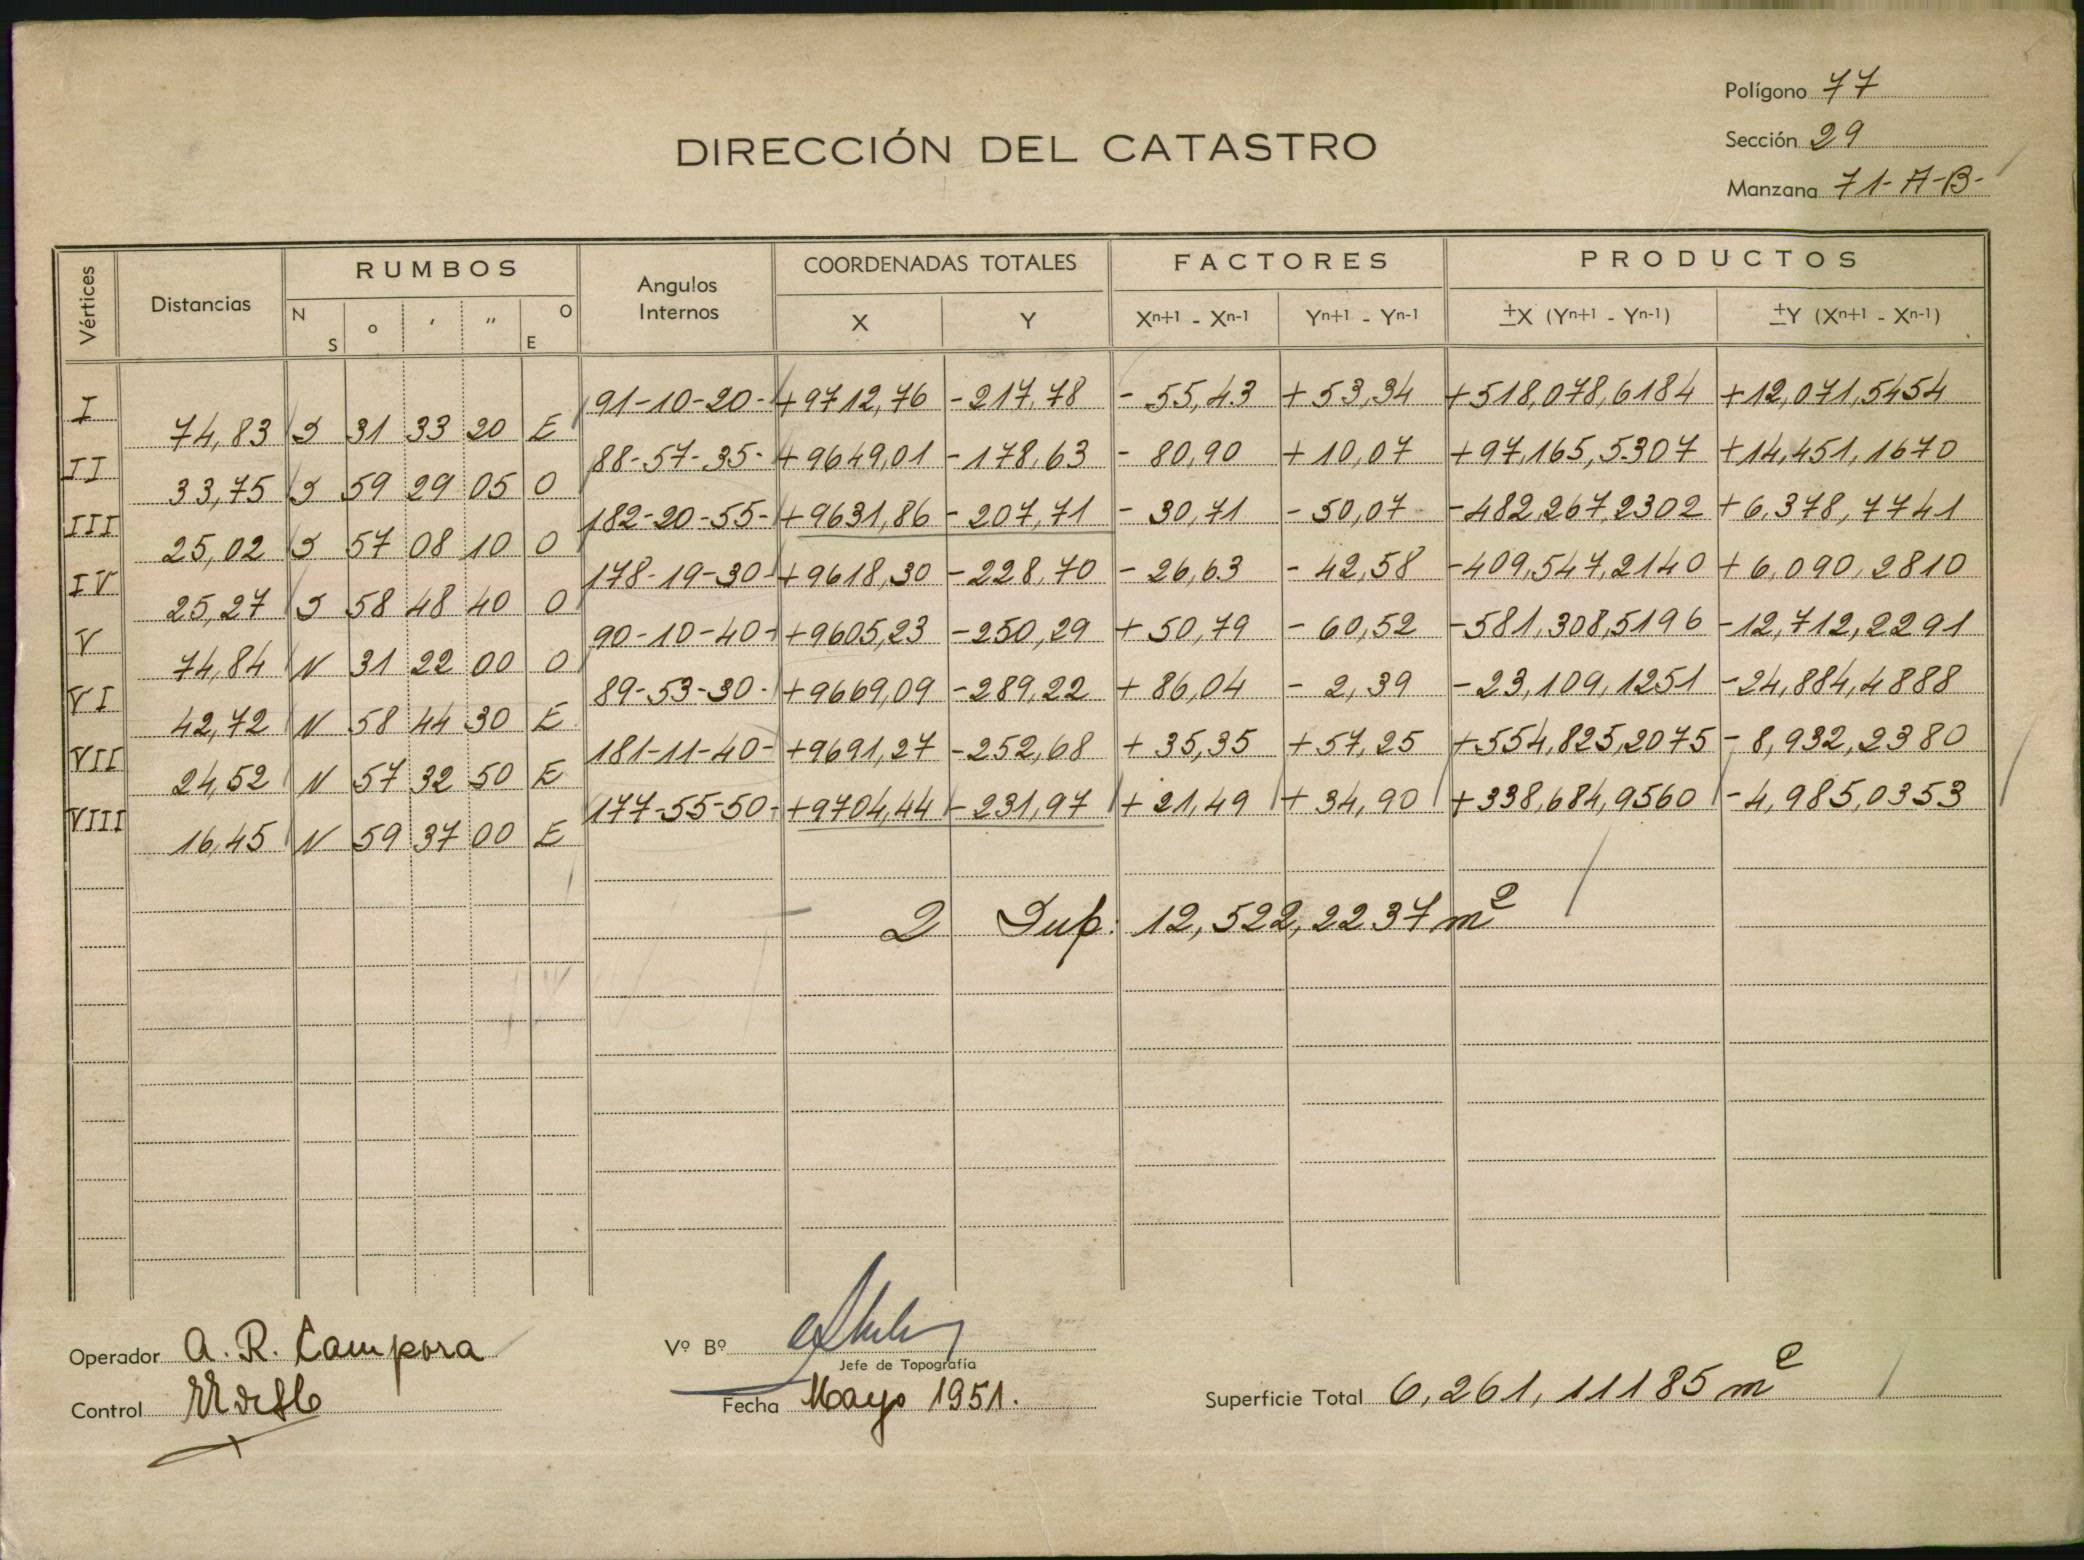 Polígono 77
DIRECCIÓN DEL CATASTRO
Sección 29
Manzana 71-A-B-
Vértices Distancias RUMBOS Angulos Internos COORDENADAS TOTALES FACTORES PRODUCTOS
N S o ′ ″ O E X Y Xn+1 - Xn-1 Yn+1 - Yn-1 ±X (Yn+1 - Yn-1) ±Y (Xn+1 - Xn-1)
I 91-10-20- +9712,76 -217,78 - 55,43 + 53,34 +518,078,6184 +12,071,5454
74,83 S 31 33 20 E
II 88-57-35- +9649,01 -178,63 - 80,90 + 10,07 +97,165,5307 +14,451,1670
33,75 S 59 29 05 O
III 182-20-55- +9631,86 -207,71 - 30,71 - 50,07 -482,267,2302 +6,378,7741
25,02 S 57 08 10 O
IV 178-19-30- +9618,30 -228,70 - 26,63 - 42,58 -409,547,2140 +6,090,2810
25,27 S 58 48 40 O
V 90-10-40- +9605,23 -250,29 + 50,79 - 60,52 -581,308,5196 -12,712,2291
74,84 N 31 22 00 O
VI 89-53-30- +9669,09 -289,22 + 86,04 - 2,39 -23,109,1251 -24,884,4888
42,72 N 58 44 30 E
VII 181-11-40- +9691,27 -252,68 + 35,35 + 57,25 +554,825,2075 -8,932,2380
24,52 N 57 32 50 E
VIII 177-55-50- +9704,44 -231,97 + 21,49 + 34,90 +338,684,9560 -4,985,0353
16,45 N 59 37 00 E
2 Sup: 12,522,2237 m2
Operador A. R. Campora
Vº Bº
Jefe de Topografía
Control
Fecha Mayo 1951.
Superficie Total 6,261,11185 m2